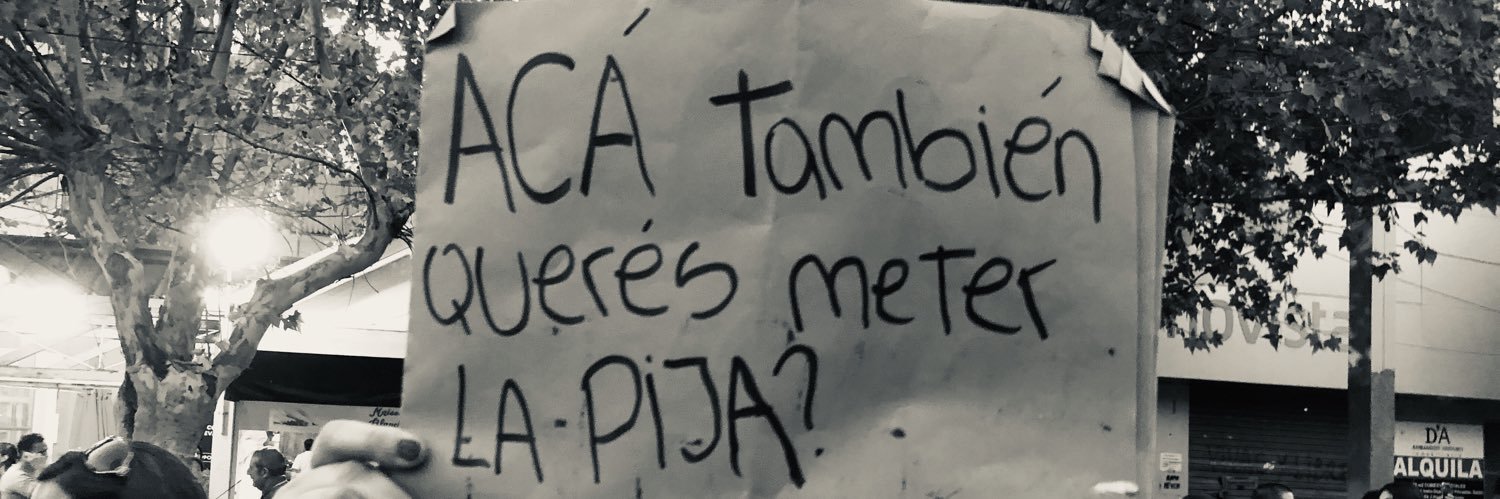 ACÁ también
querés meter
LA-PiJA?
D'A
ALQUILA